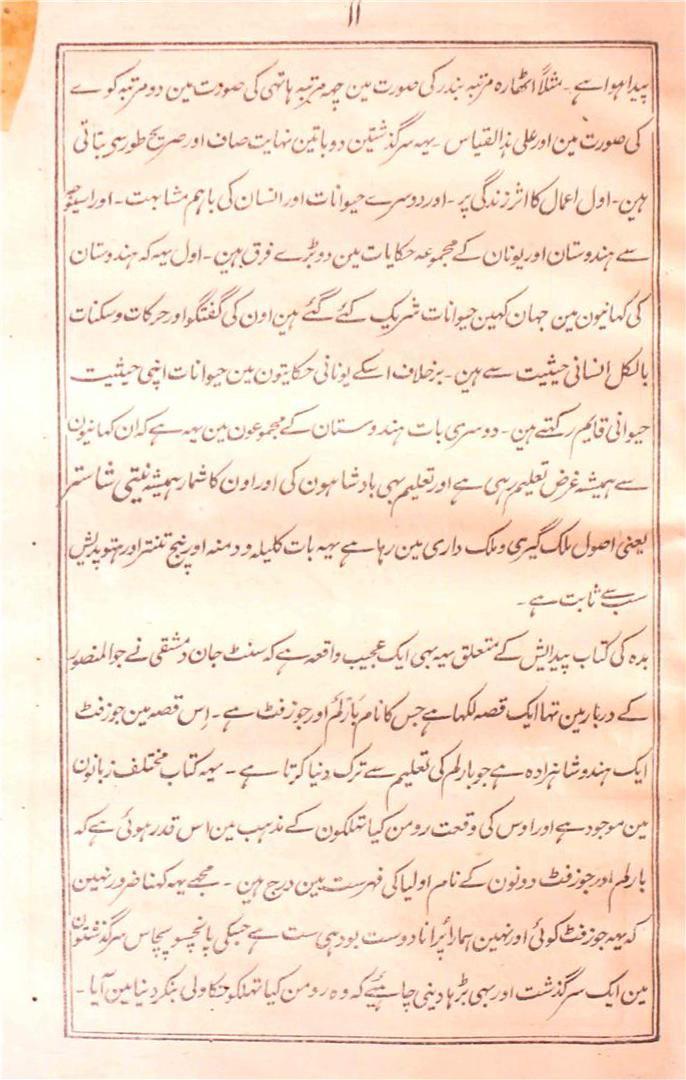 ۱۱
پیدا ہوا ہے ۔ مثلاً اٹھارہ مرتبہ بندر کی صورت مین چھہ مرتبہ ہاتھی کی صورت مین دو مرتبہ کوے
کی صورت مین اور علی ہذا القیاس ۔ یہہ سرگذشتین دو باتین نہایت صاف اور صریح طور سی بتاتی
ہین ۔ اول اعمال کا اثر زندگی پر ۔ اور دوسرے حیوانات اور انسان کی باہم مشابہت ۔ اور اسیوجھہ
سے ہندوستان اور یونان کے مجموعہ حکایات مین دو بڑے فرق ہین ۔ اول یہہ کہ ہندوستان
کی کہانیون مین جہان کہین حیوانات شریک کئے گئے ہین اون کی گفتگو اور حرکات و سکنات
بالکل انسانی حیثیت سے ہین ۔ برخلاف اسکے یونانی حکایتون مین حیوانات اپنی حیثیت
حیوانی قایم رکہتے ہین ۔ دوسری بات ہندوستان کے مجموعون مین یہہ ہے کہ ان کہانیون
سے ہمیشہ غرض تعلیم رہی ہے اور تعلیم بہی بادشاہون کی اور اون کا شمار ہمیشہ نیتی شاستر
یعنی اصول ملک گیری و ملک داری مین رہا ہے یہہ بات کلیلہ و دمنہ اور پنچ تنتر اور ہتوپدیش
سب سے ثابت ہے ۔
بدہ کی کتاب پیدایش کے متعلق یہہ بہی ایک عجیب واقعہ ہے کہ سنٹ جان دمشقی نے جو المنصور
کے دربار مین تہا ایک قصہ لکہا ہے جس کا نام بارلم اور جوزفٹ ہے ۔ اِس قصہ مین جوزفٹ
ایک ہندو شاہزادہ ہے جو بارلم کی تعلیم سے ترک دنیا کرتا ہے ۔ یہہ کتاب مختلف زبانون
مین موجود ہے اور اوس کی وقعت رومن کیاتھلکون کے مذہب مین اس قدر ہوئی ہے کہ
بارلم اور جوزفٹ دونون کے نام اولیا کی فہرست مین درج ہین ۔ مجھے یہہ کہنا ضرور نہین
کہ یہہ جوزفٹ کوئی اور نہین ہمارا پُرانا دوست بودہی ست ہے جسکی پانچسو پچاس سرگذشتون
مین ایک سرگذشت اور بہی بڑہا دینی چاہیئے کہ وہ رومن کیاتھلکو نکا ولی بنکر دنیا مین آیا ۔